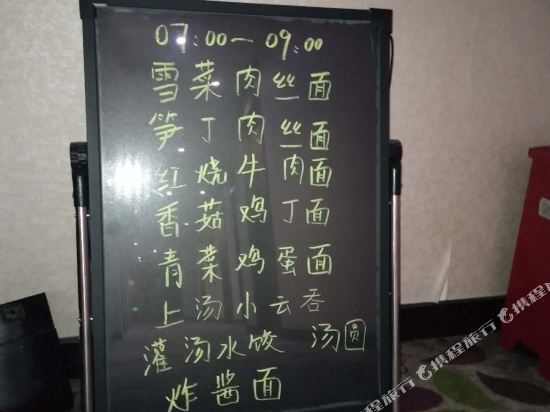 07:00—09:00
雪菜肉丝面
笋丁肉丝面
红烧牛肉面
香菇鸡丁面
青菜鸡蛋面
上汤小云吞
灌汤水饺 汤圆
炸酱面
携程旅行
携程旅行